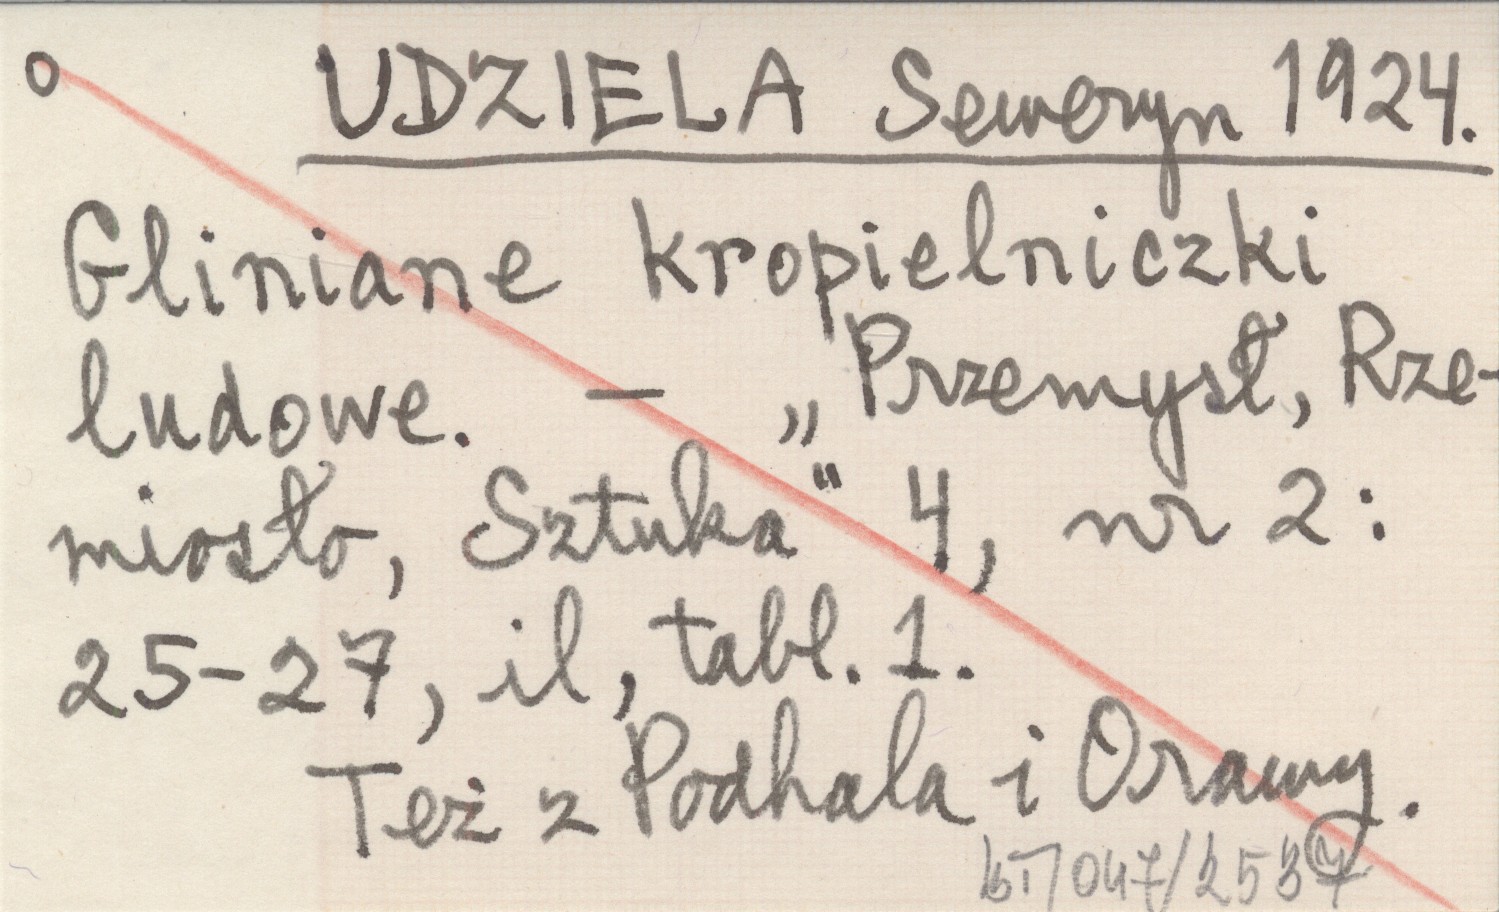 o UDZIELA Seweryn 1924.
Gliniane kropielniczki
ludowe. — „Przemysł, Rze-
miosło, Sztuka" 4, nr 2:
25-27, il, tabl. 1.
Też z Podhala i Orawy.